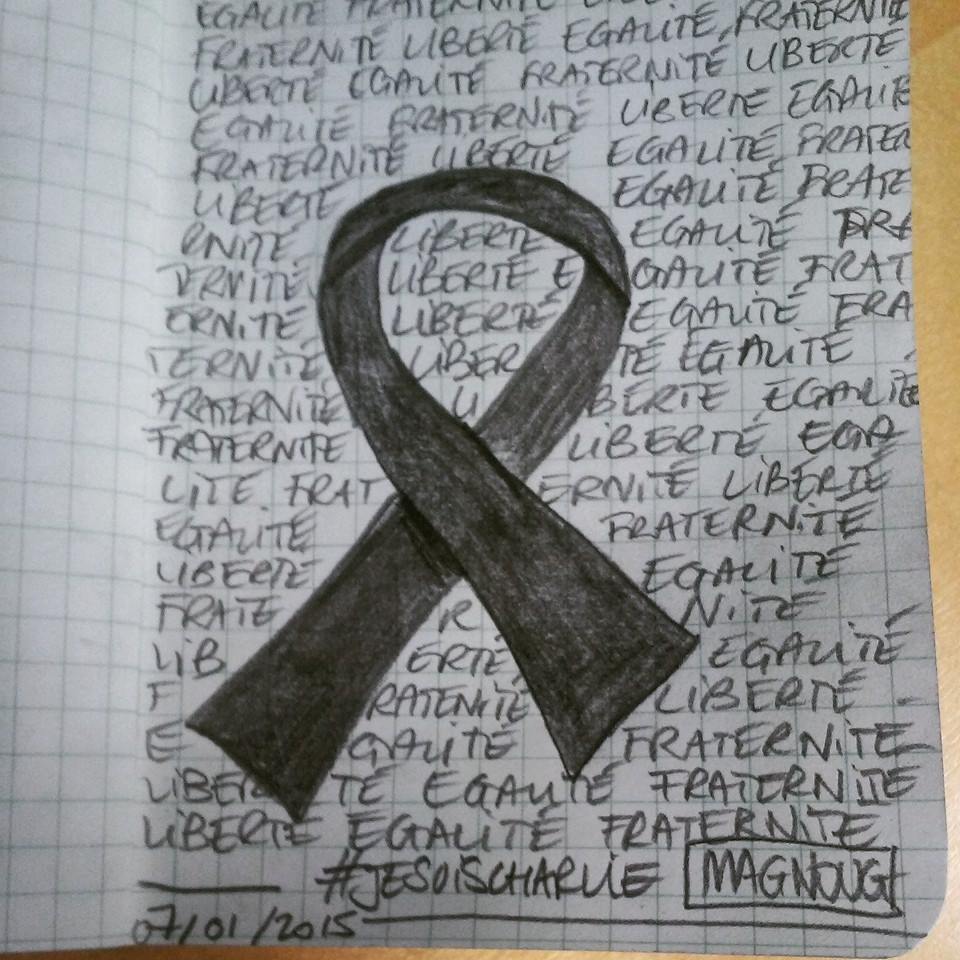 EGALITÉ FRATERNITÉ
FRATERNITÉ LIBERTÉ EGALITÉ, FRATERNITÉ
LIBERTÉ EGALITÉ FRATERNITÉ LIBERTÉ
EGALITÉ FRATERNITÉ LIBERTÉ EGALITÉ
FRATERNITÉ LIBERTÉ EGALITÉ FRATER
LIBERTÉ EGALITÉ FRATE
RNITÉ LIBERTÉ EGALITÉ FRA
TERNITÉ LIBERTÉ E GALITÉ FRAT
ERNITÉ LIBERTÉ EGALITÉ FRA
TERNITÉ LIBER TÉ EGALITÉ
FRATERNITÉ LI BERTÉ EGALITÉ
FRATERNITE LIBERTÉ EGA
LITÉ FRAT ERNITÉ LIBERTÉ
EGALITÉ FRATERNITÉ
LIBERTÉ EGALITÉ
FRATE R NITÉ
LIB ERTÉ EGALITÉ
F RATENITÉ LIBERTÉ
E GALITÉ FRATERNITÉ
LIBER TÉ EGALITÉ FRATERNITÉ
LIBERTÉ EGALITÉ FRATERNITÉ
#JESUISCHARLIE MAGNOUG
07/01/2015